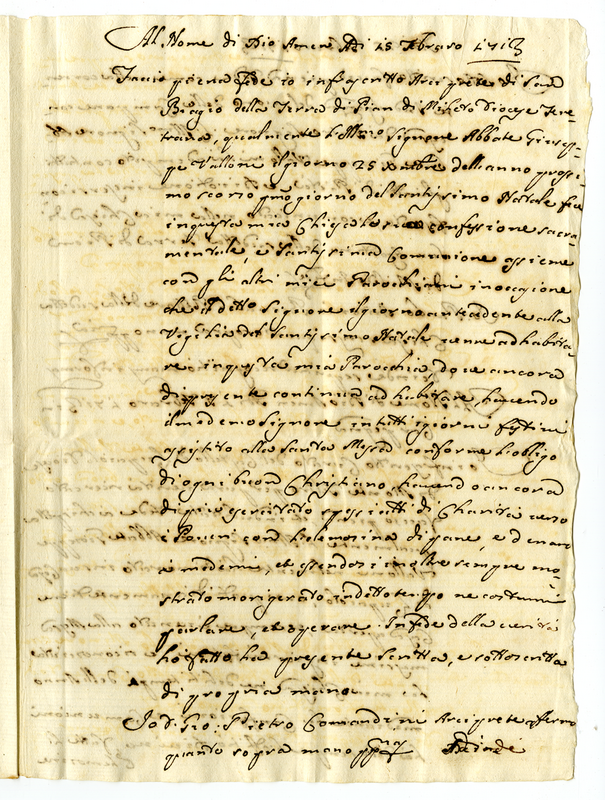 Al Nome di Dio Amen Adi 15 Febraro 1713
Faccio piena fede io infrascritto Arciprete di San
Biagio della Terra di Pian di Mileto Diocese Fere-
trana, qualmente Signore Abbate Giusep-
pe Valloni il giorno 25 dell anno prossi-
mo scorso giorno del Santissimo Natale fece
in questa mia Chiesa la sua confessione sacra-
mentale, e Santissima Comunione assieme
con gli altri miei Parochiani in occasione
che il detto Signore il giorno antecedente alla
Vigilia del Santissimo Natale venne ad habita-
re in questa mia Parocchia, dove ancora
di presente continua ad habitare, havendo
il mademo Signore in tutti i giorni festivi
assistito alla Santa Messa conforme l'obligo
di ogni buon Christiano, havendo ancora
di più esercitato spessi atti di Charità verso
i Poveri con helemosina di pane, e denaro
a mademi, et essendosi inoltre sempre mo-
strato morigerato in detto tempo ne costumi
parlare, et operare. In fede della verità
ho fatto la presente scritta, e sottoscritta
di propria mano
Io D. Gio: Pietro Comandini Arciprete affermo
quanto sopra mano